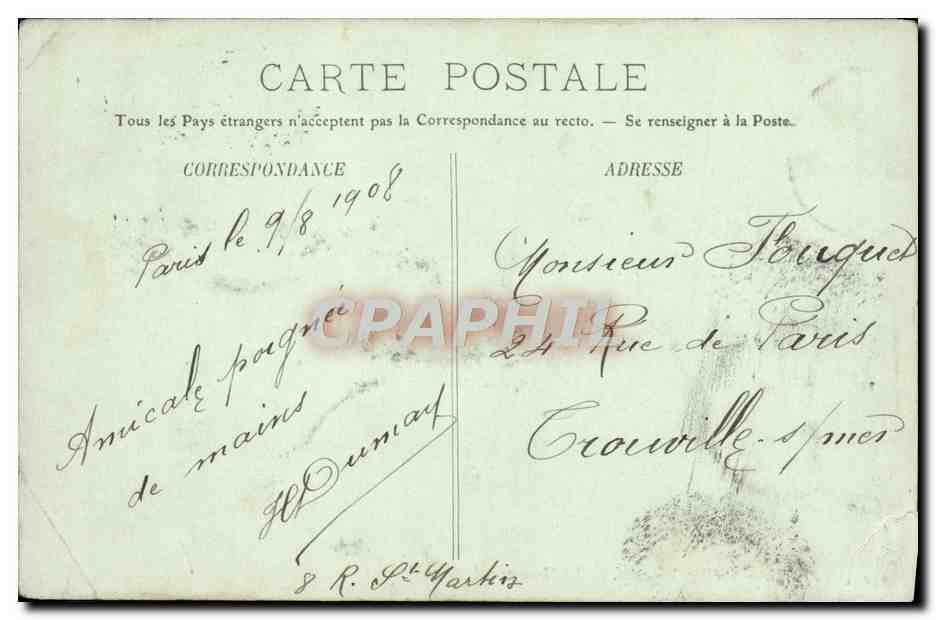 CARTE POSTALE
Tous les Pays étrangers n'acceptent pas la Correspondance au recto. — Se renseigner à la Poste.
CORRESPONDANCE
Paris le 9/8 1908
Amicale poignée
de mains
Dumas
8 R. St Martin
ADRESSE
Monsieur Fouquet
24 Rue de Paris
Trouville s/mer
CPAPHIL